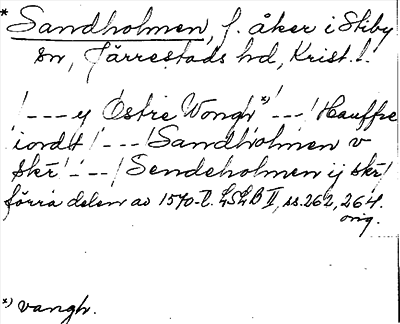 * Sandholmen, f. åker i Stiby
sn, Järrestads hd, Krist. l.
/ - - - y Östre Wongh *) - - - / Hauffre
iordt / - - - / Sandholmen v
skr / - - - / Sendeholmen ij skr /
förra delen av 1570-t. LSLB II, ss. 262, 264.
orig.
*) vangh.